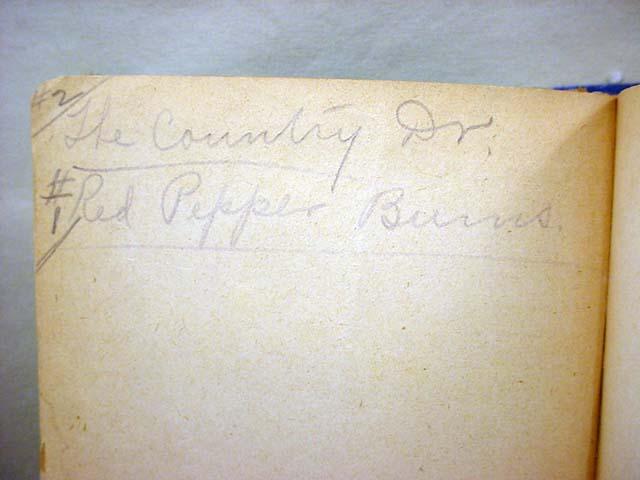 #2 The Country Dr.
#1 Red Pepper Burns.